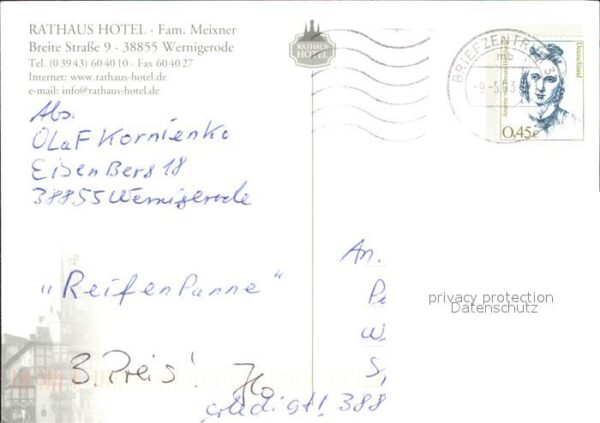 RATHAUS HOTEL · Fam. Meixner
Breite Straße 9 · 38855 Wernigerode
Tel. (0 39 43) 60 40 10 · Fax 60 40 27
Internet: www.rathaus-hotel.de
e-mail: info@rathaus-hotel.de
RATHAUS
HOTEL
BRIEFZENTRUM
mb
Deutschland
0,45€
Abs.
OLaF Kornienko
EisenBerg 18
38855 Wernigerode
An.
"ReifenPanne"
privacy protection
Datenschutz
3. Preis!
erledigt! 388